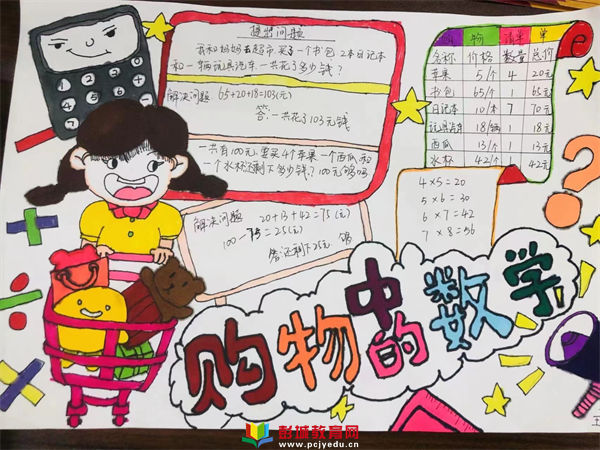 提出问题
我和妈妈去超市买了一个书包 2本日记本
和一辆玩具汽车一共花了多少钱?
解决问题 65+20+18=103(元)
答:一共花了103元钱
一共有100元,要买4个苹果 一个西瓜和
一个水杯还剩下多少钱?100元够吗
解决问题 20+13+42=75(元)
100-75=25(元)
答还剩下25元 够
购物清单
名称 价格 数量 总价
苹果 5/个 4 20元
书包 65/个 1 65元
日记本 10/本 7 70元
玩具汽车 18/辆 1 18元
西瓜 13/个 1 13元
水杯 42/个 1 42元
4×5=20
5×6=30
6×7=42
7×8=56
购物中的数学
王
彭城教育网
www.pcjyedu.cn